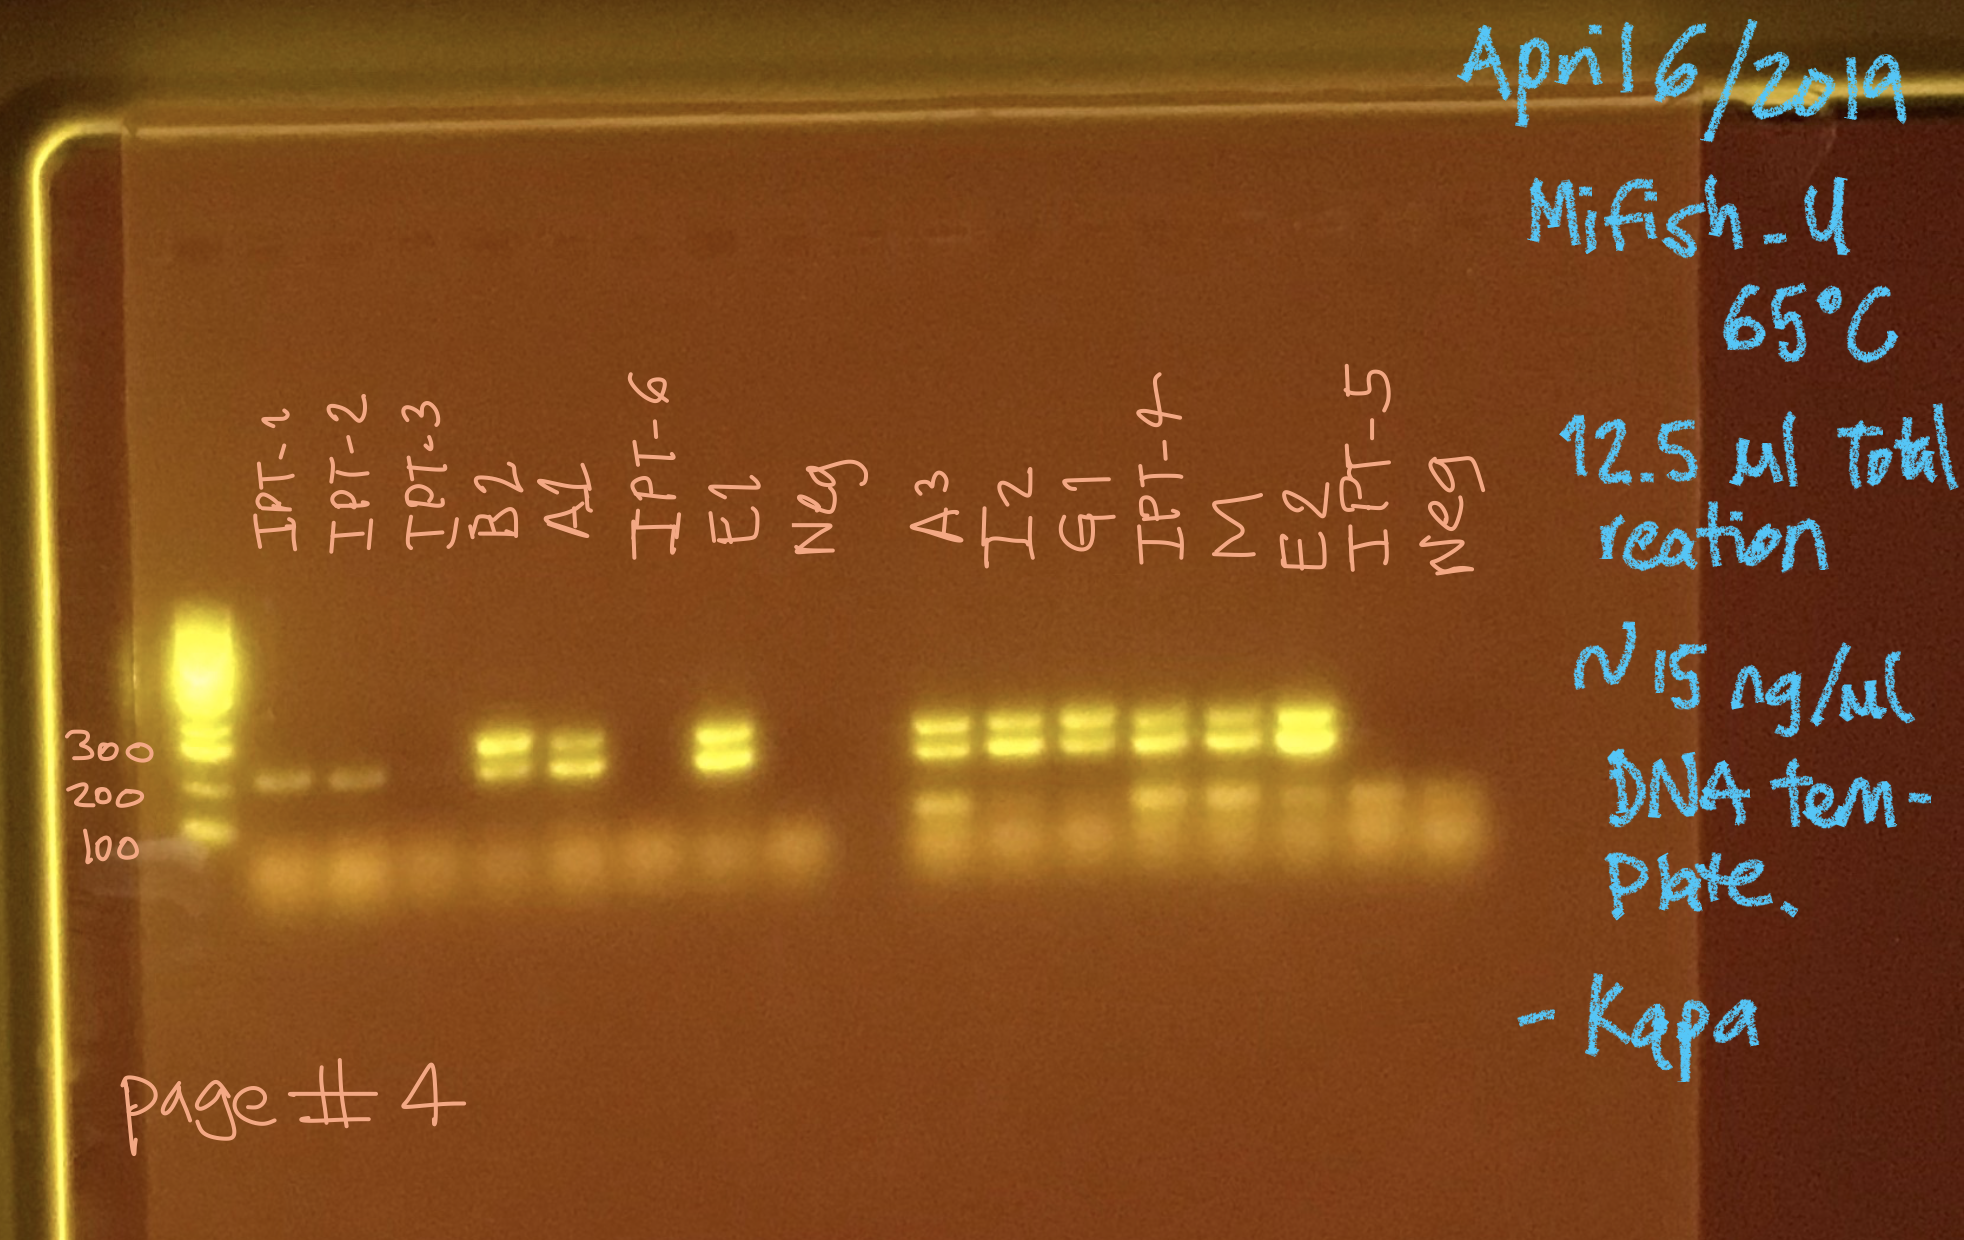 April 6/2019
Mifish-U
65°C
12.5 µl Total
reation
~15 ng/µl
DNA tem-
plate.
- Kapa
IPT-1
IPT-2
IPT-3
B2
A1
IPT-6
E1
Neg
A3
I2
G1
IPT-4
M
E2
IPT-5
Neg
300
200
100
page # 4